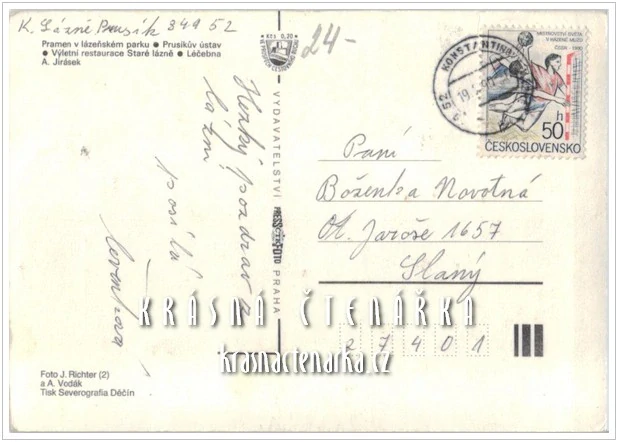 K. Lázně Prusík 349 52
Pramen v lázeňském parku ● Prusikův ústav
● Výletní restaurace Staré lázně ● Léčebna
A. Jirásek
Kčs 0,20
24-
KONSTANTINOVY
52
19.
MISTROVSTVÍ SVĚTA
V HÁZENÉ MUŽŮ
ČSSR - 1990
50 h
ČESKOSLOVENSKO
Hezký pozdrav z
lázní
posílá
VYDAVATELSTVÍ PRESSFOTO PRAHA
Paní
Boženka Novotná
Ot. Jaroše 1657
Slaný
27401
KRÁSNÁ ČTENÁŘKA
krasnactenarka.cz
Foto J. Richter (2)
a A. Vodák
Tisk Severografia Děčín